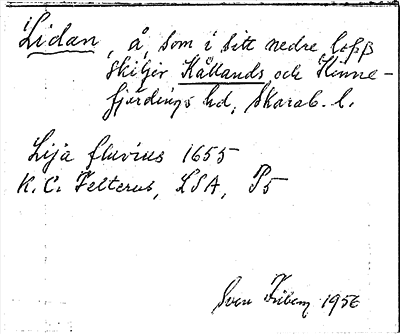 Lidan, å, som i sitt nedre lopp
skiljer Kållands och Kinne-
fjärdings hd, Skarab. l.
Lija fluvius 1655
K. C. Felterus, LSA, P5
Sven 1956